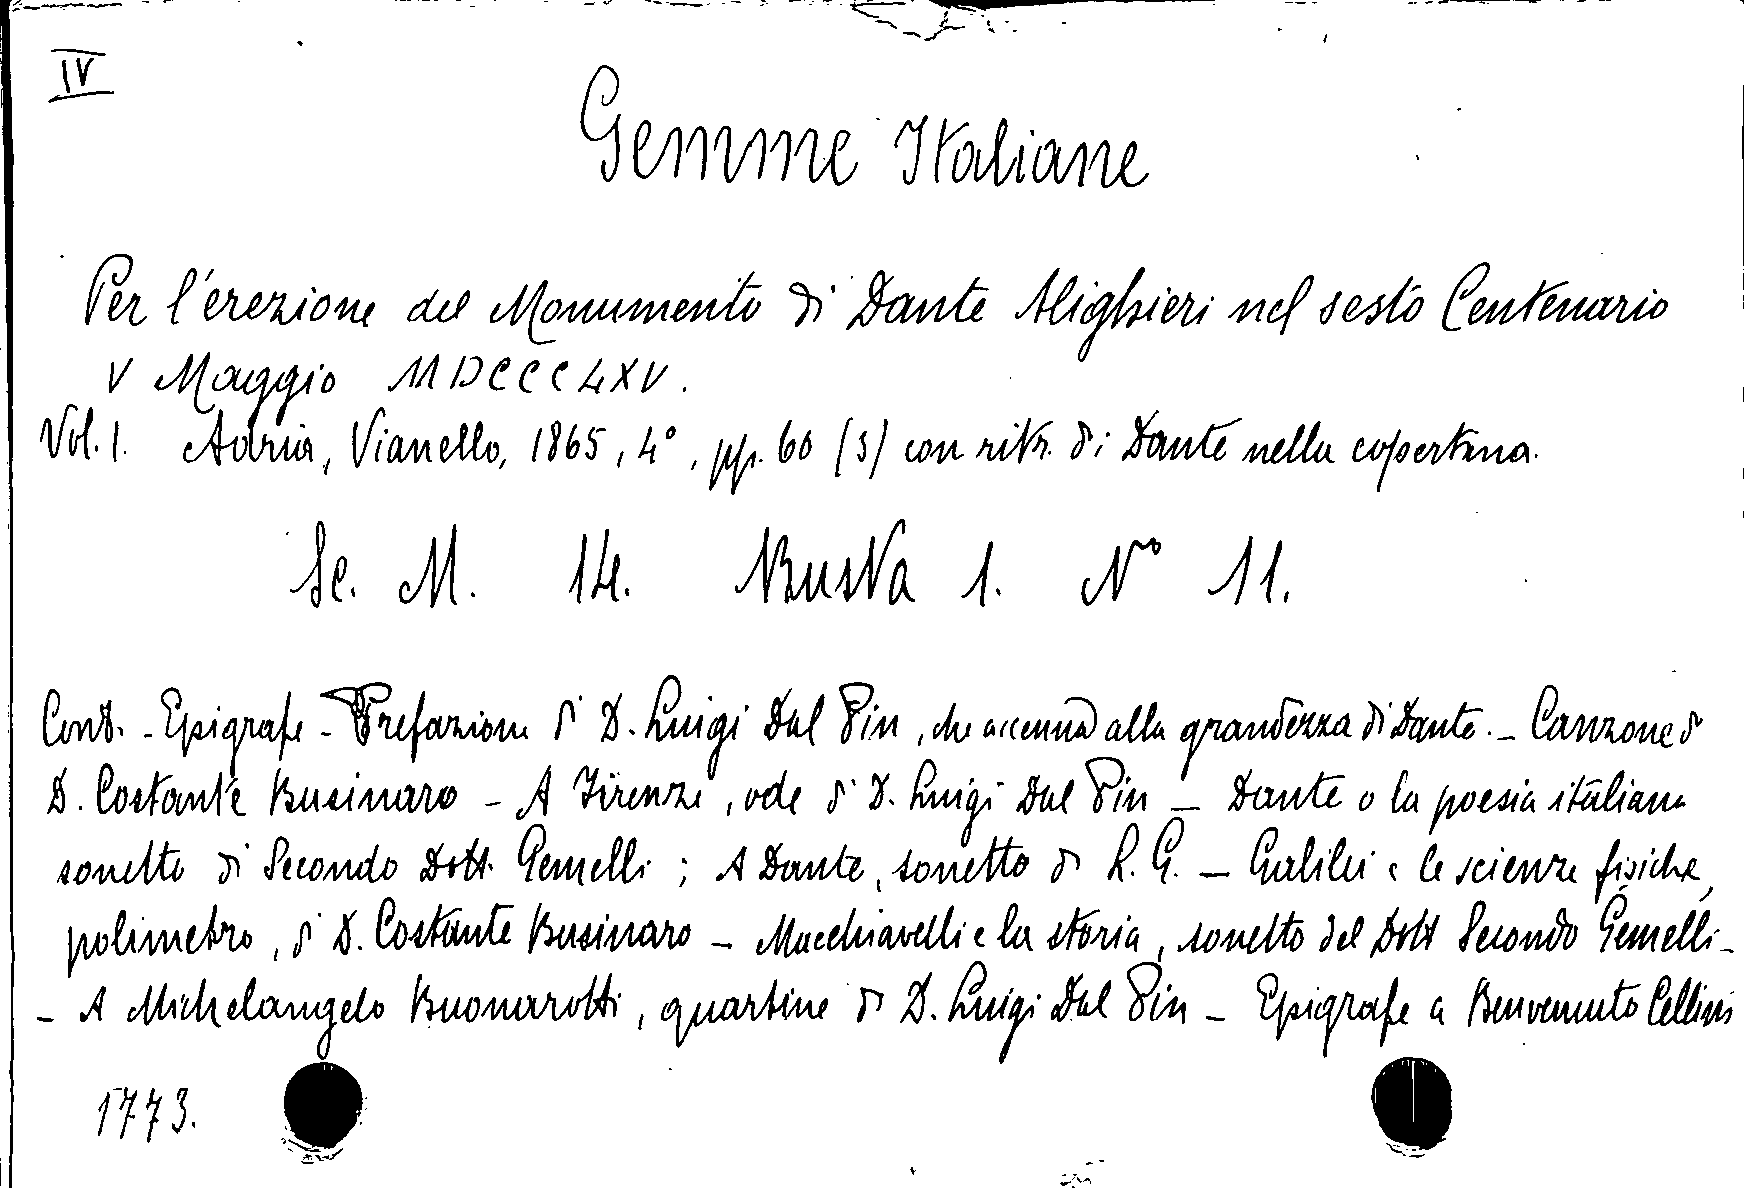 IV
Gemme Italiane
Per l'erezione del Monumento di Dante Alighieri nel sesto Centenario
V Maggio MDCCCLXV.
Vol. 1. Adria, Vianello, 1865, 4°, pp. 60 (3) con ritr. di Dante nella copertina.
Sc. M. 14. Busta 1. N° 11.
Cont. - Epigrafe - Prefazione di D. Luigi Dal Pin, che accenna alla grandezza di Dante. - Canzone di
D. Costante Businaro - A Firenze, ode di D. Luigi Dal Pin - Dante o la poesia italiana
sonetto di Secondo Dott. Gemelli; A Dante, sonetto di L. G. - Galilei e le scienze fisiche,
polimetro, di D. Costante Businaro - Macchiavelli e la storia, sonetto del Dott Secondo Gemelli -
- A Michelangelo Buonarotti, quartine di D. Luigi Dal Pin - Epigrafe a Benvenuto Cellini
1773.